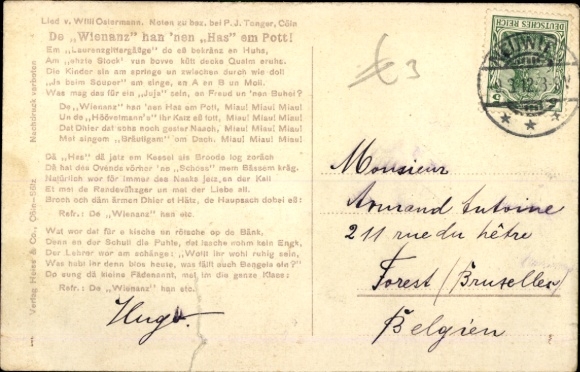 Lied v. Willi Ostermann. Noten zu bez. bei P. J. Tonger, Cöln
De „Wienanz" han 'nen „Has" em Pott!
Em „Laurenzgittergäßge" do eß bekränz en Huhs,
Am „ehzte Stock" vun bovve kütt decke Qualm eruhs.
Die Kinder sin am springe un zwischen durch wie doll
„Je beim Souper" am singe, en A en B un Moll.
Was mag das för ein „Juja" sein, en Freud un 'nen Buhei?
De „Wienanz" han 'nen Has em Pott, Miau! Miau! Miau!
Un de „Höövelmann's" ihr Katz eß fott, Miau! Miau! Miau!
Dat Dhier dat sohs noch gester Naach, Miau! Miau! Miau!
Met singem „Bräutigam" om Dach. Miau! Miau! Miau!
Dä „Has" dä jatz em Kessel als Broode log zoräch
Dä hat des Ovends vörher 'ne „Schoss" mem Bässem kräg.
Natürlich wor för immer des Nachs jetz en der Kell
Et met de Randevüttger un met der Liebe all.
Broch och däm ärmen Dhier et Hätz, de Haupsach dobei eß:
Refr.: De „Wienanz" han etc.
Wat wor dat för e kische un rötsche op de Bänk,
Denn en der Schull die Puhle, det lache nohm kein Engk,
Der Lehrer wor am schänge: „Wollt ihr wohl ruhig sein,
Was habt ihr denn blos heute, was fällt auch Bengels ein?"
Do sung dä kleine Fädenannt, met im die ganze Klass:
Refr.: De „Wienanz" han etc.
Nachdruck verboten
Verlag Heiss & Co., Cöln
Hugo.
€ 3
DEUTSCHES REICH
5
NEUWIED
Monsieur
Armand Antoine
211 rue du hêtre
Forest (Bruxelles)
Belgien